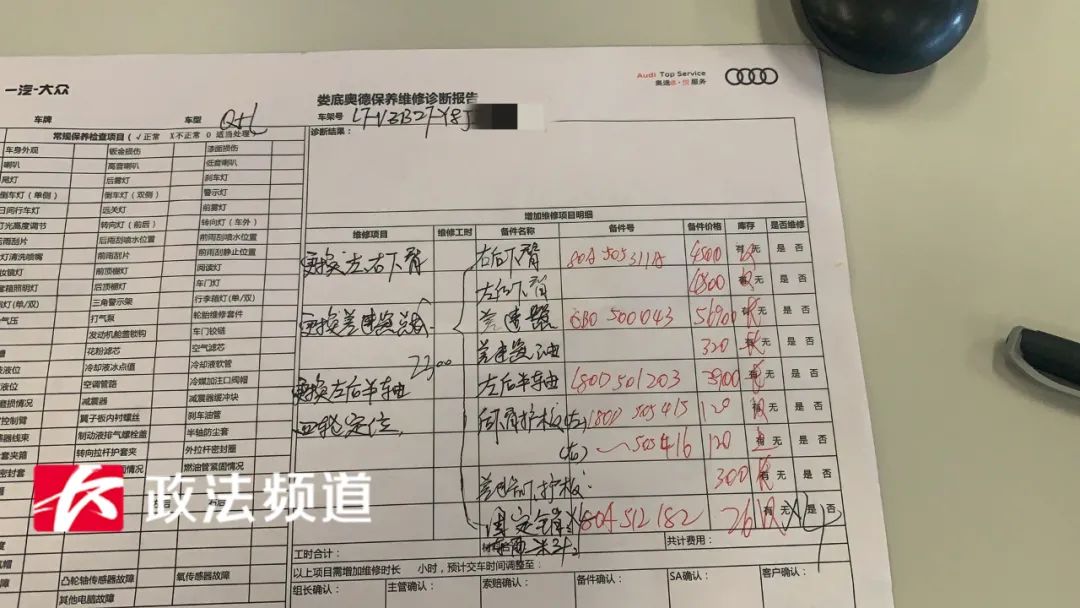 一汽-大众
Audi Top Service
奥迪卓·悦服务
娄底奥德保养维修诊断报告
车牌 车型 Q5L 车架号
常规保养检查项目 ( √正常 X不正常 0 适当处理)
诊断结果：
车身外观 钣金损伤 漆面损伤
喇叭 高音喇叭 低音喇叭
尾灯 后雾灯 刹车灯
倒车灯（单侧） 倒车灯（双侧） 警示灯
日间行车灯 远关灯 前雾灯
灯光高度调节 转向灯（前后） 转向灯（车外）
后雨刮片 后雨刮喷水位置 前雨刮喷水位置
灯清洗喷嘴 前雨刮片 前雨刮静止位置
妆镜灯 前顶棚灯 阅读灯
套箱照明灯 后顶棚灯 车门灯
灯(单/双) 三角警示架 行李箱灯(单/双)
气压 打气泵 轮胎维修套件
发动机舱盖锁钩 车门铰链
花粉滤芯 空气滤芯
液位 冷却液冰点值 冷却液软管
液位 空调管路 冷媒加注口阀帽
磨损情况 减震器 减震器缓冲块
控制臂 翼子板内衬螺丝 刹车油管
感器线束 制动液排气螺栓盖 半轴防尘套
套夹箍 转向拉杆护套 外拉杆密封圈
密封套 情况 燃油管紧固情况
凸轮轴传感器故障 氧传感器故障
其他电脑故障
增加维修项目明细
维修项目 维修工时 备件名称 备件号 备件价格 库存 是否维修
更换左右下臂 右后下臂 80A 505 311A 4800 有 无 是 否
左后下臂 4800 有 无 是 否
更换差速器总成 差速器 0B0 500 043 56900 有 无 是 否
2300 差速器油 320 有 无 是 否
更换左后半轴 左后半轴 80D 501 203 有 无 是 否
四轮定位 下臂护板(左) 80D 505 415 120 有 无 是 否
(右) 505 416 120 有 无 是 否
下护板 300 有 无 是 否
80A 512 182 26 有 无 X4 是 否
工时合计： 共计费用：
以上项目需增加维修时长 小时，预计交车时间调整至：
组长确认： 主管确认： 索赔确认： 备件确认： SA确认： 客户确认：
政法频道